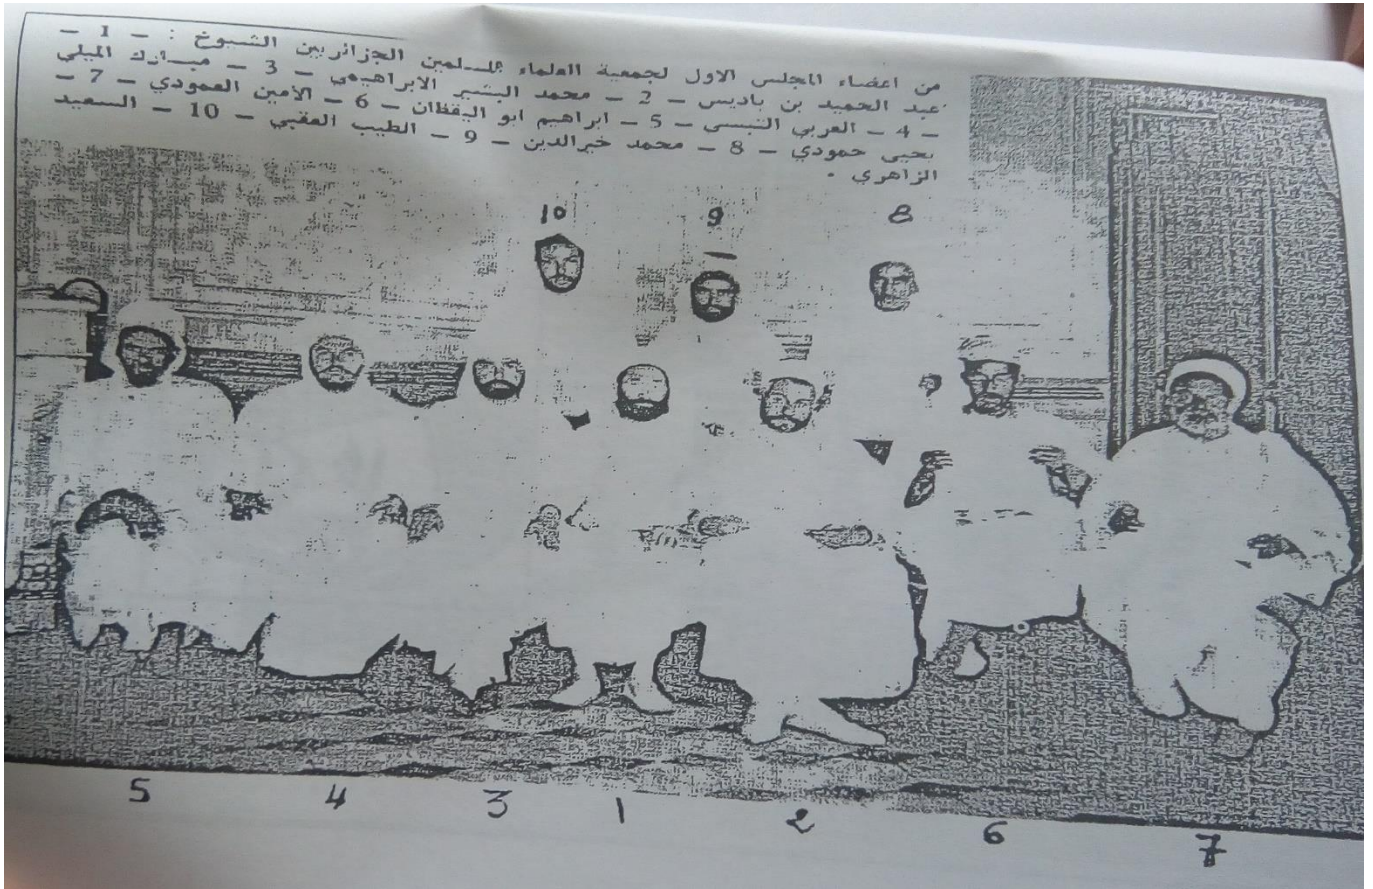 من اعضاء المجلس الاول لجمعية العلماء المسلمين الجزائريين الشيوخ : _ 1 _
عبد الحميد بن باديس _ 2 _ محمد البشير الابراهيمي _ 3 _ مبارك الميلي
_ 4 _ العربي التبسي _ 5 _ ابراهيم ابو اليقظان _ 6 _ الأمين العمودي _ 7 _
يحيى حمودي _ 8 _ محمد خيرالدين _ 9 _ الطيب العقبي _ 10 _ السعيد
الزاهري .
10 9 8
5 4 3 1 2 6 7